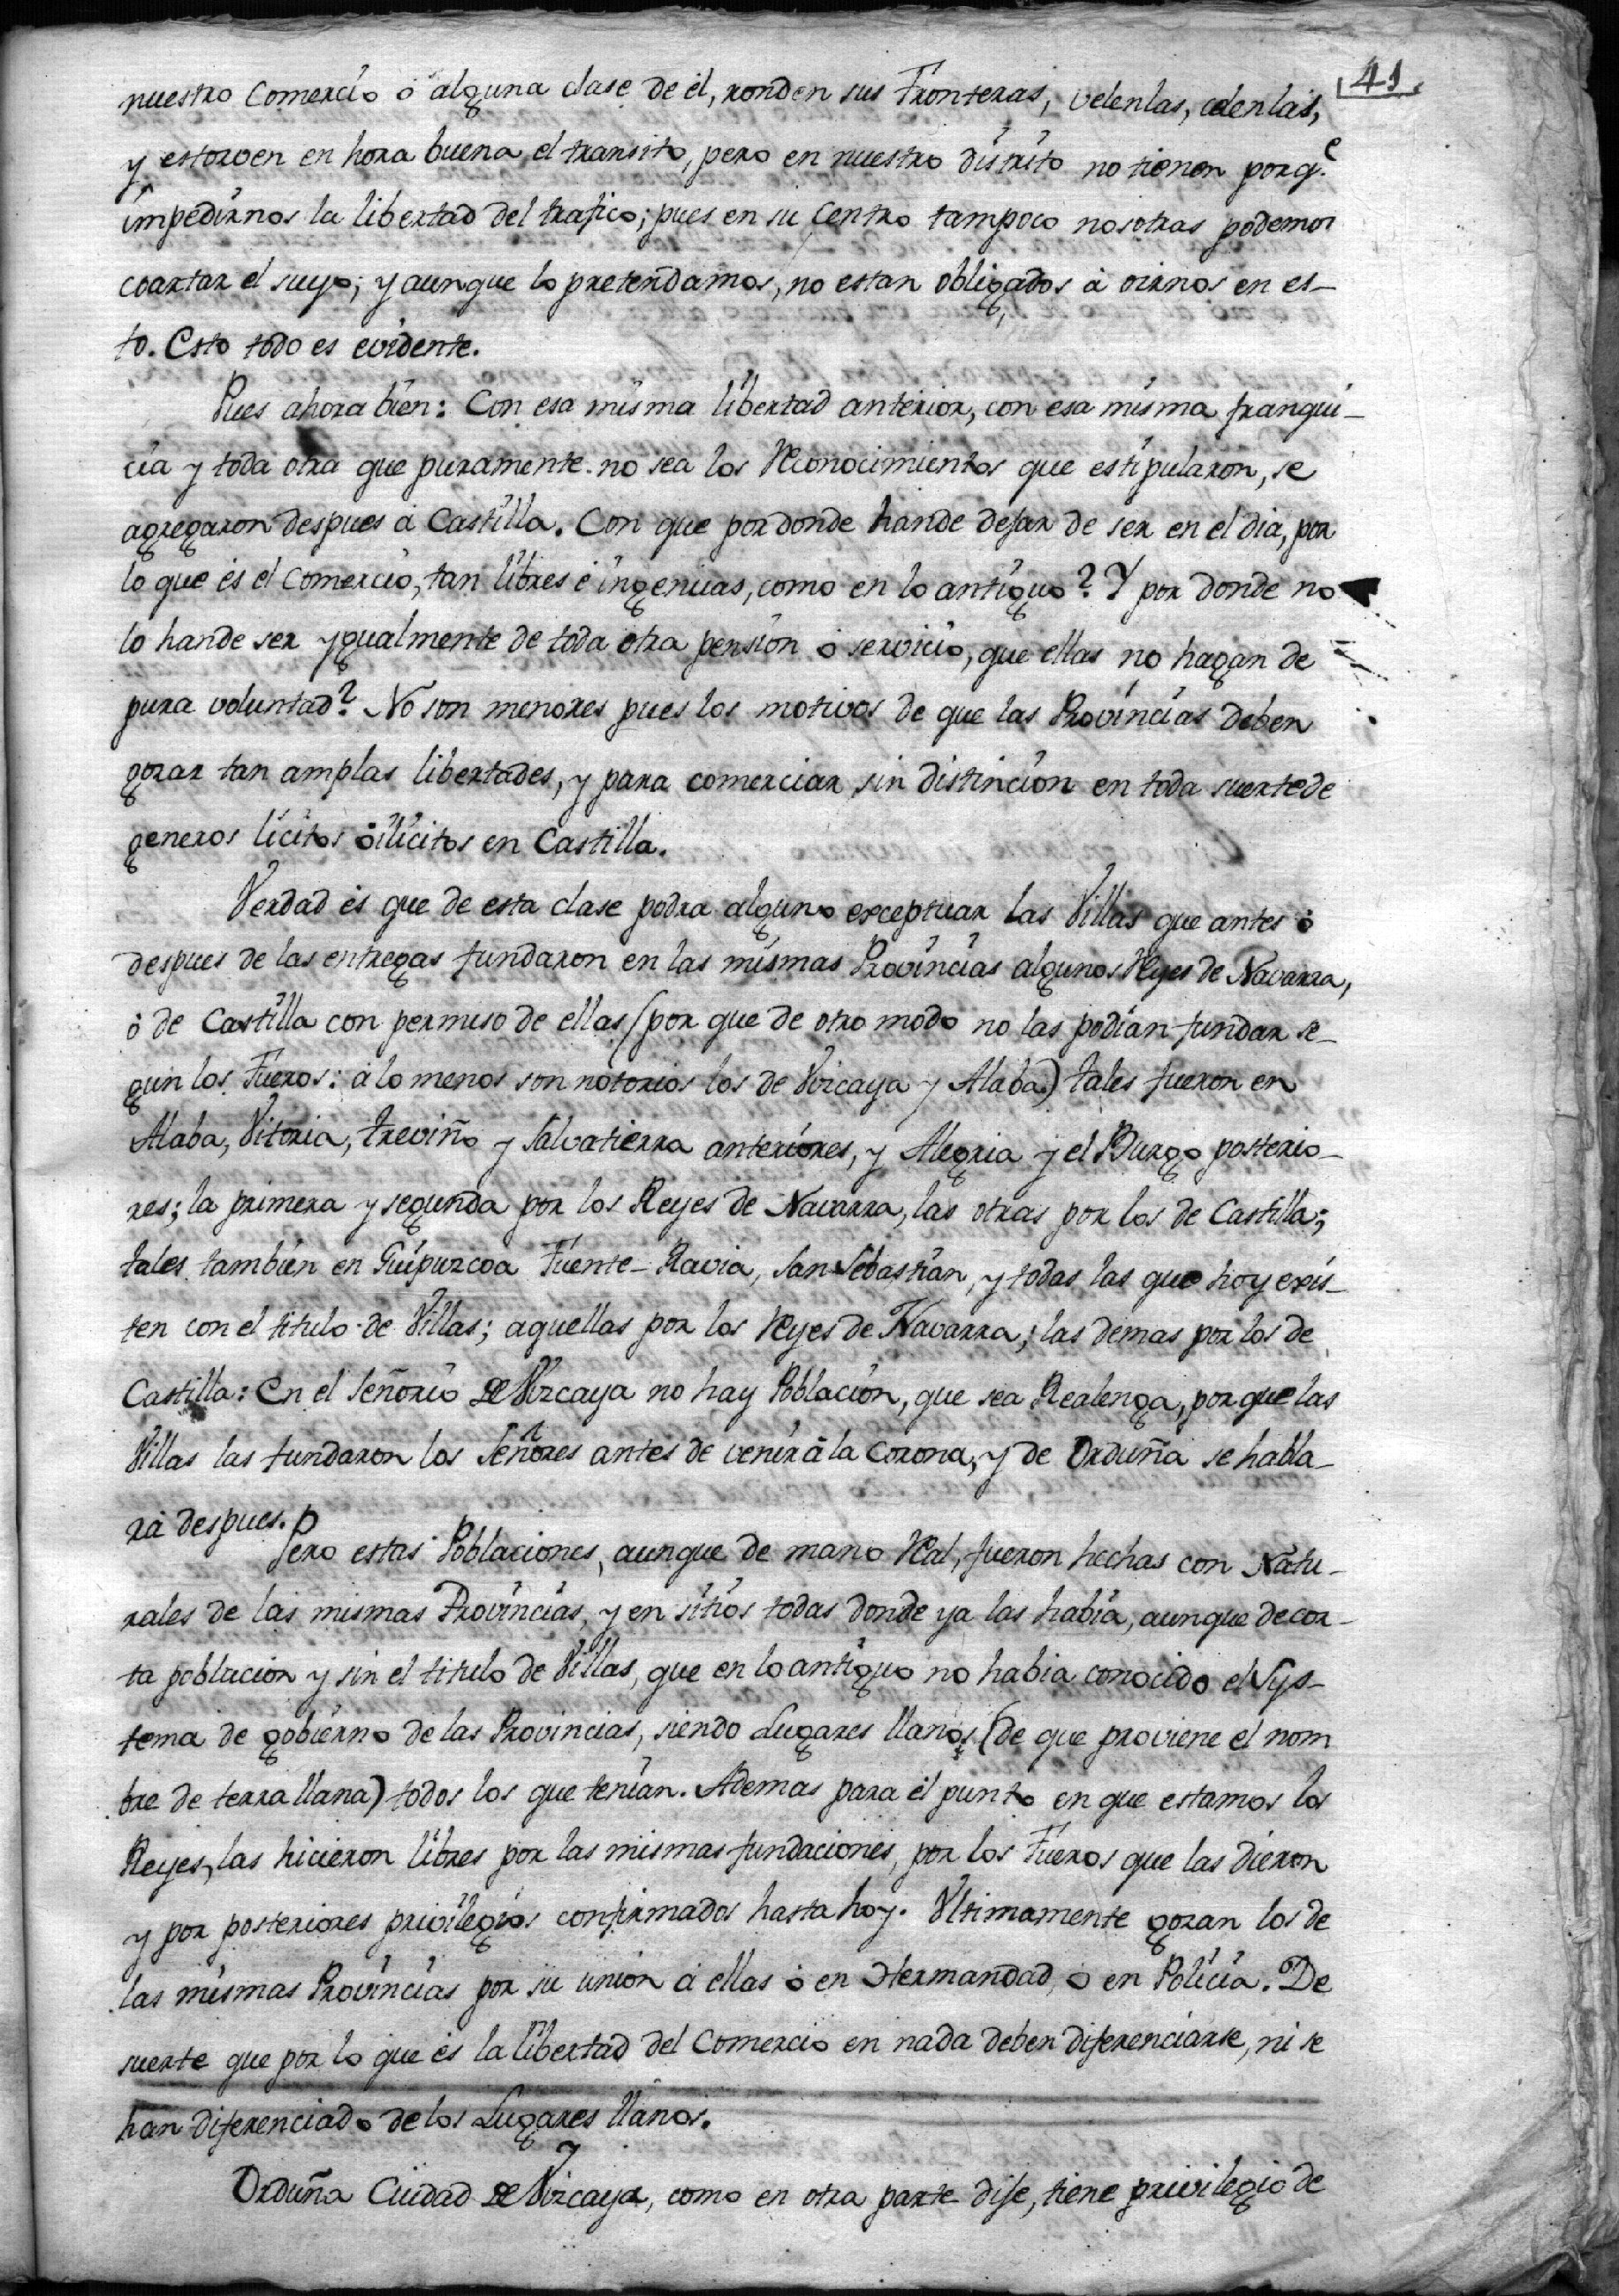 41
nuestro Comercio ó alguna clase de él, ronden sus Fronteras, velenlas, celenlas,
y estorven en hora buena el transito, pero en nuestro distrito no tienen porq.e
impedirnos la libertad del trafico; pues en su centro tampoco nosotras podemos
coartar el suyo; y aunque lo pretendamos, no estan obligados á oirnos en es-
to. Esto todo es evidente.
Pues ahora bien: Con esa misma libertad anterior, con esa misma franqui-
cia y toda otra que puramente no sea los Reconocimientos que estipularon, se
agregaron despues á Castilla. Con que por donde hande dejar de ser en el dia, por
lo que és el Comercio, tan libres é ingenuas, como en lo antiguo? Y por donde no
lo hande ser ygualmente de toda otra pension ó servicio, que ellas no hagan de
pura voluntad? No son menores pues los motivos de que las Provincias deben
gozar tan amplas libertades, y para comerciar sin distincion en toda suerte de
generos licitos ó ilicitos en Castilla.
Verdad és que de esta clase podra alguno exceptuar las Villas que antes ó
despues de las entregas fundaron en las mismas Provincias algunos Reyes de Navarra,
ó de Castilla con permiso de ellas (por que de otro modo no las podian fundar se-
gun los Fueros: á lo menos son notorios los de Vizcaya y Alaba) tales fueron en
Alaba, Vitoria, treviño y Salvatierra anteriores, y Alegria y el Burgo posterio-
res; la primera y segunda por los Reyes de Navarra, las otras por los de Castilla;
tales tambien en Guipuzcoa Fuente-Ravia, San Sebastian, y todas las que hoy exis-
ten con el titulo de Villas; aquellas por los Reyes de Navarra; las demas por los de
Castilla: En el Señorio de Vizcaya no hay Poblacion, que sea Realenga, por que las
Villas las fundaron los Señores antes de venir á la Corona, y de Orduña se habla-
rá despues.
Pero estas Poblaciones, aunque de mano Real, fueron hechas con Natu-
rales de las mismas Provincias, y en sitios todas donde ya las habia, aunque de cor-
ta poblacion y sin el titulo de Villas, que en lo antiguo no habia conocido el Sys-
tema de gobierno de las Provincias, siendo Lugares llanos (de que proviene el nom
bre de terra llana) todos los que tenian. Ademas para el punto en que estamos los
Reyes, las hicieron libres por las mismas fundaciones, por los Fueros que las dieron
y por posteriores privilegios confirmados hasta hoy. Ultimamente gozan los de
las mismas Provincias por su union á ellas ó en Hermandad, ó en Policia. De
suerte que por lo que és la libertad del Comercio en nada deben diferenciarse, ni se
han diferenciado de los Lugares llanos.
Orduña Ciudad de Vizcaya, como en otra parte dise, tiene privilegio de